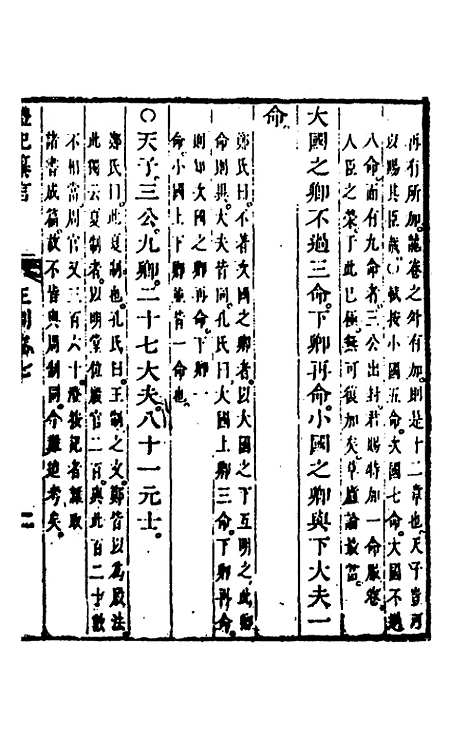 再有所加。諡卷之外有加。則是十二章也。天子豈可
以賜其臣哉。○栻按小國五命。大國七命。大國不過
八命。而有九命者。三公出封。若賜特加一命服卷。
人臣之榮。于此已極。無可復加矣。草廬論最當。
大國之卿不過三命。下卿再命。小國之卿與下大夫一
命。
鄭氏曰。不著次國之卿者。以大國之下互明之。此卿
命則異。大夫皆同。孔氏曰。大國上卿三命。下卿再命
則知次國之卿再命。下卿一
命。小國上下卿並皆一命也。
○天子三公九卿。二十七大夫。八十一元士。
鄭氏曰。此夏制也。孔氏曰。王制之文。鄭皆以為殷法
此獨云夏制者。以明堂位殷官二百。與此百二十數
不相當。周官又三百六十。澄按記者雜取
諸書成篇。故不皆與周制同。今難追考矣。
禮記纂言 王制卷七